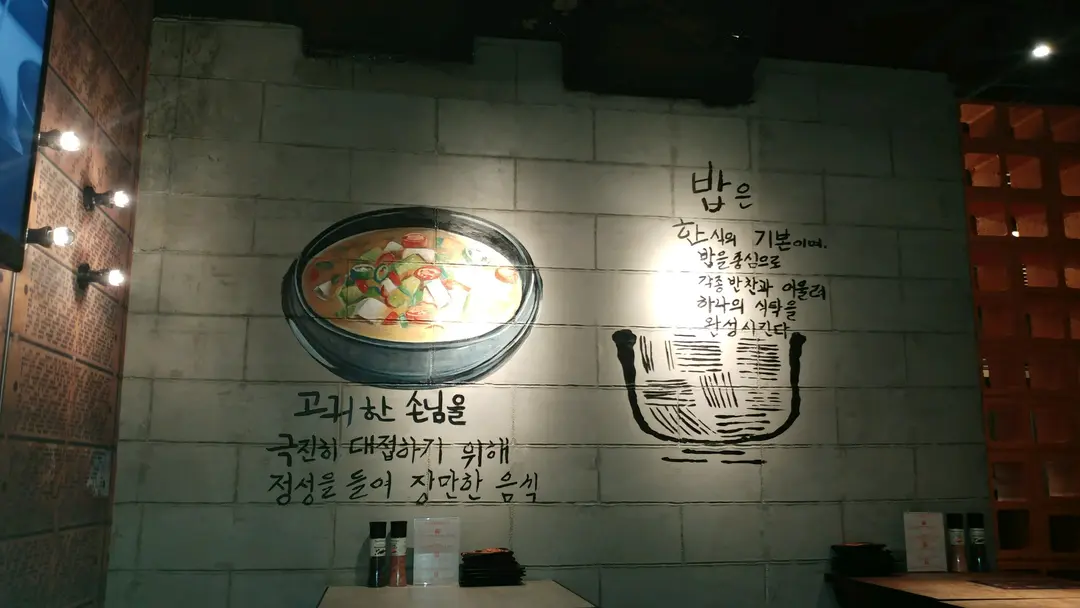 고귀한 손님을
극진히 대접하기 위해
정성을 들여 장만한 음식
밥은
한식의 기본이며.
밥을 중심으로
각종 반찬과 어울려
하나의 식탁을
완성시킨다